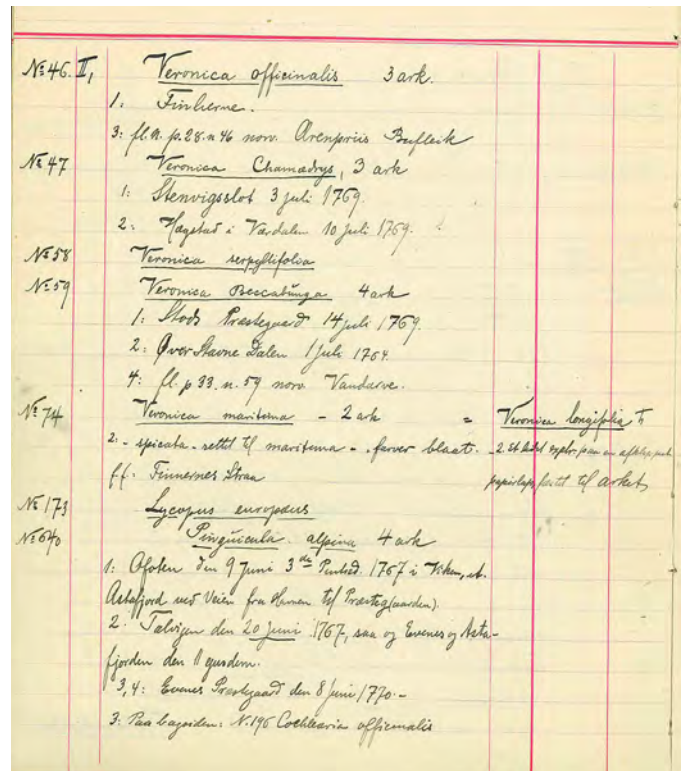 No 46. II, Veronica officinalis 3 ark.
1: Finlierne.
3: fl. n. p. 28. n 46 norv. Ærenpriis
No 47 Veronica Chamædrys, 3 ark
1: Stenvigsslot 3 juli 1769.
2: Hægstad i Værdalen 10 juli 1769.
No 58 Veronica serpyllifolia
No 59 Veronica Beccabunga 4 ark
1: Stods Præstegaard 14 juli 1769.
2: Øver Stavne Dalen 1 juli 1764.
4: fl. p 33. n. 59 norv. Vandarve.
No 74 Veronica maritima - 2 ark = Veronica longifolia
2: - spicata - rettet til maritima - . farver blaat. - 2. et
ff. Finnernes Straa til arket
No 173 Lycopus europæus
No 640 Pinguicula alpina 4 ark
1: Ofoten den 9 Juni 3de 1767 i Viken, et.
Astafjord ved Veien fra til Præsteg(aarden).
2. Talvigen den 20 Juni 1767, saa og Evenes og Asta-
fjorden den 11 ejusdem.
3, 4: Evenes Præstegaard den 8 Juni 1770. -
3: Paa bagsiden: N. 196 Cochlearia officinalis